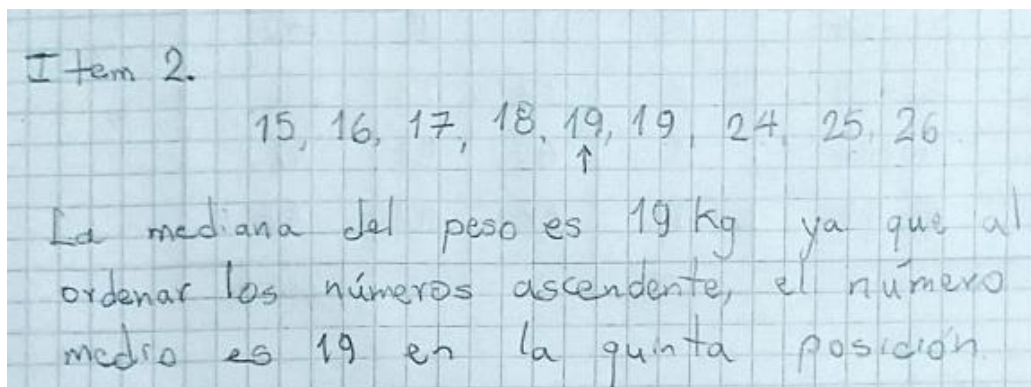 Item 2.
15, 16, 17, 18, 19, 19, 24, 25, 26
La mediana del peso es 19 kg ya que al
ordenar los números ascendente, el número
medio es 19 en la quinta posición